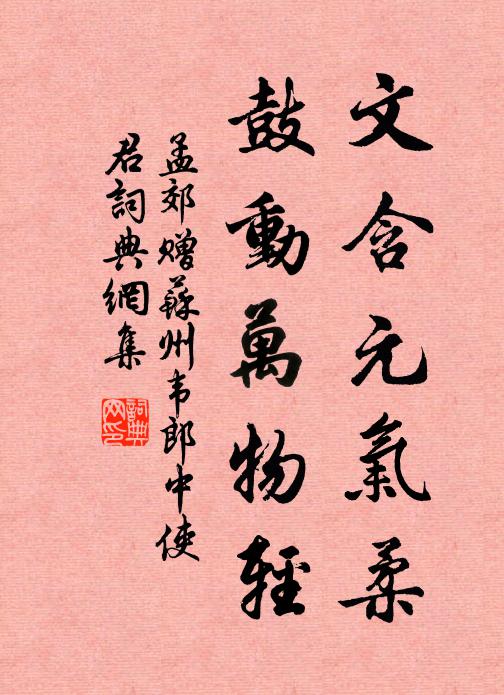 文含元氣柔
鼓動萬物輕
孟郊贈蘇州韦郎中使
君詞典網集
詞典
网印